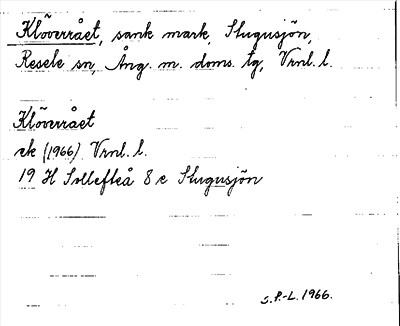 Klöverrået, sank mark, Slugusjön,
Resele sn, Ång. m. doms. tg, Vrnl. l.
Klöverrået
ek (1966) Vrnl. l.
19 H Sollefteå 8 c Slugusjön
S. P.-L. 1966.